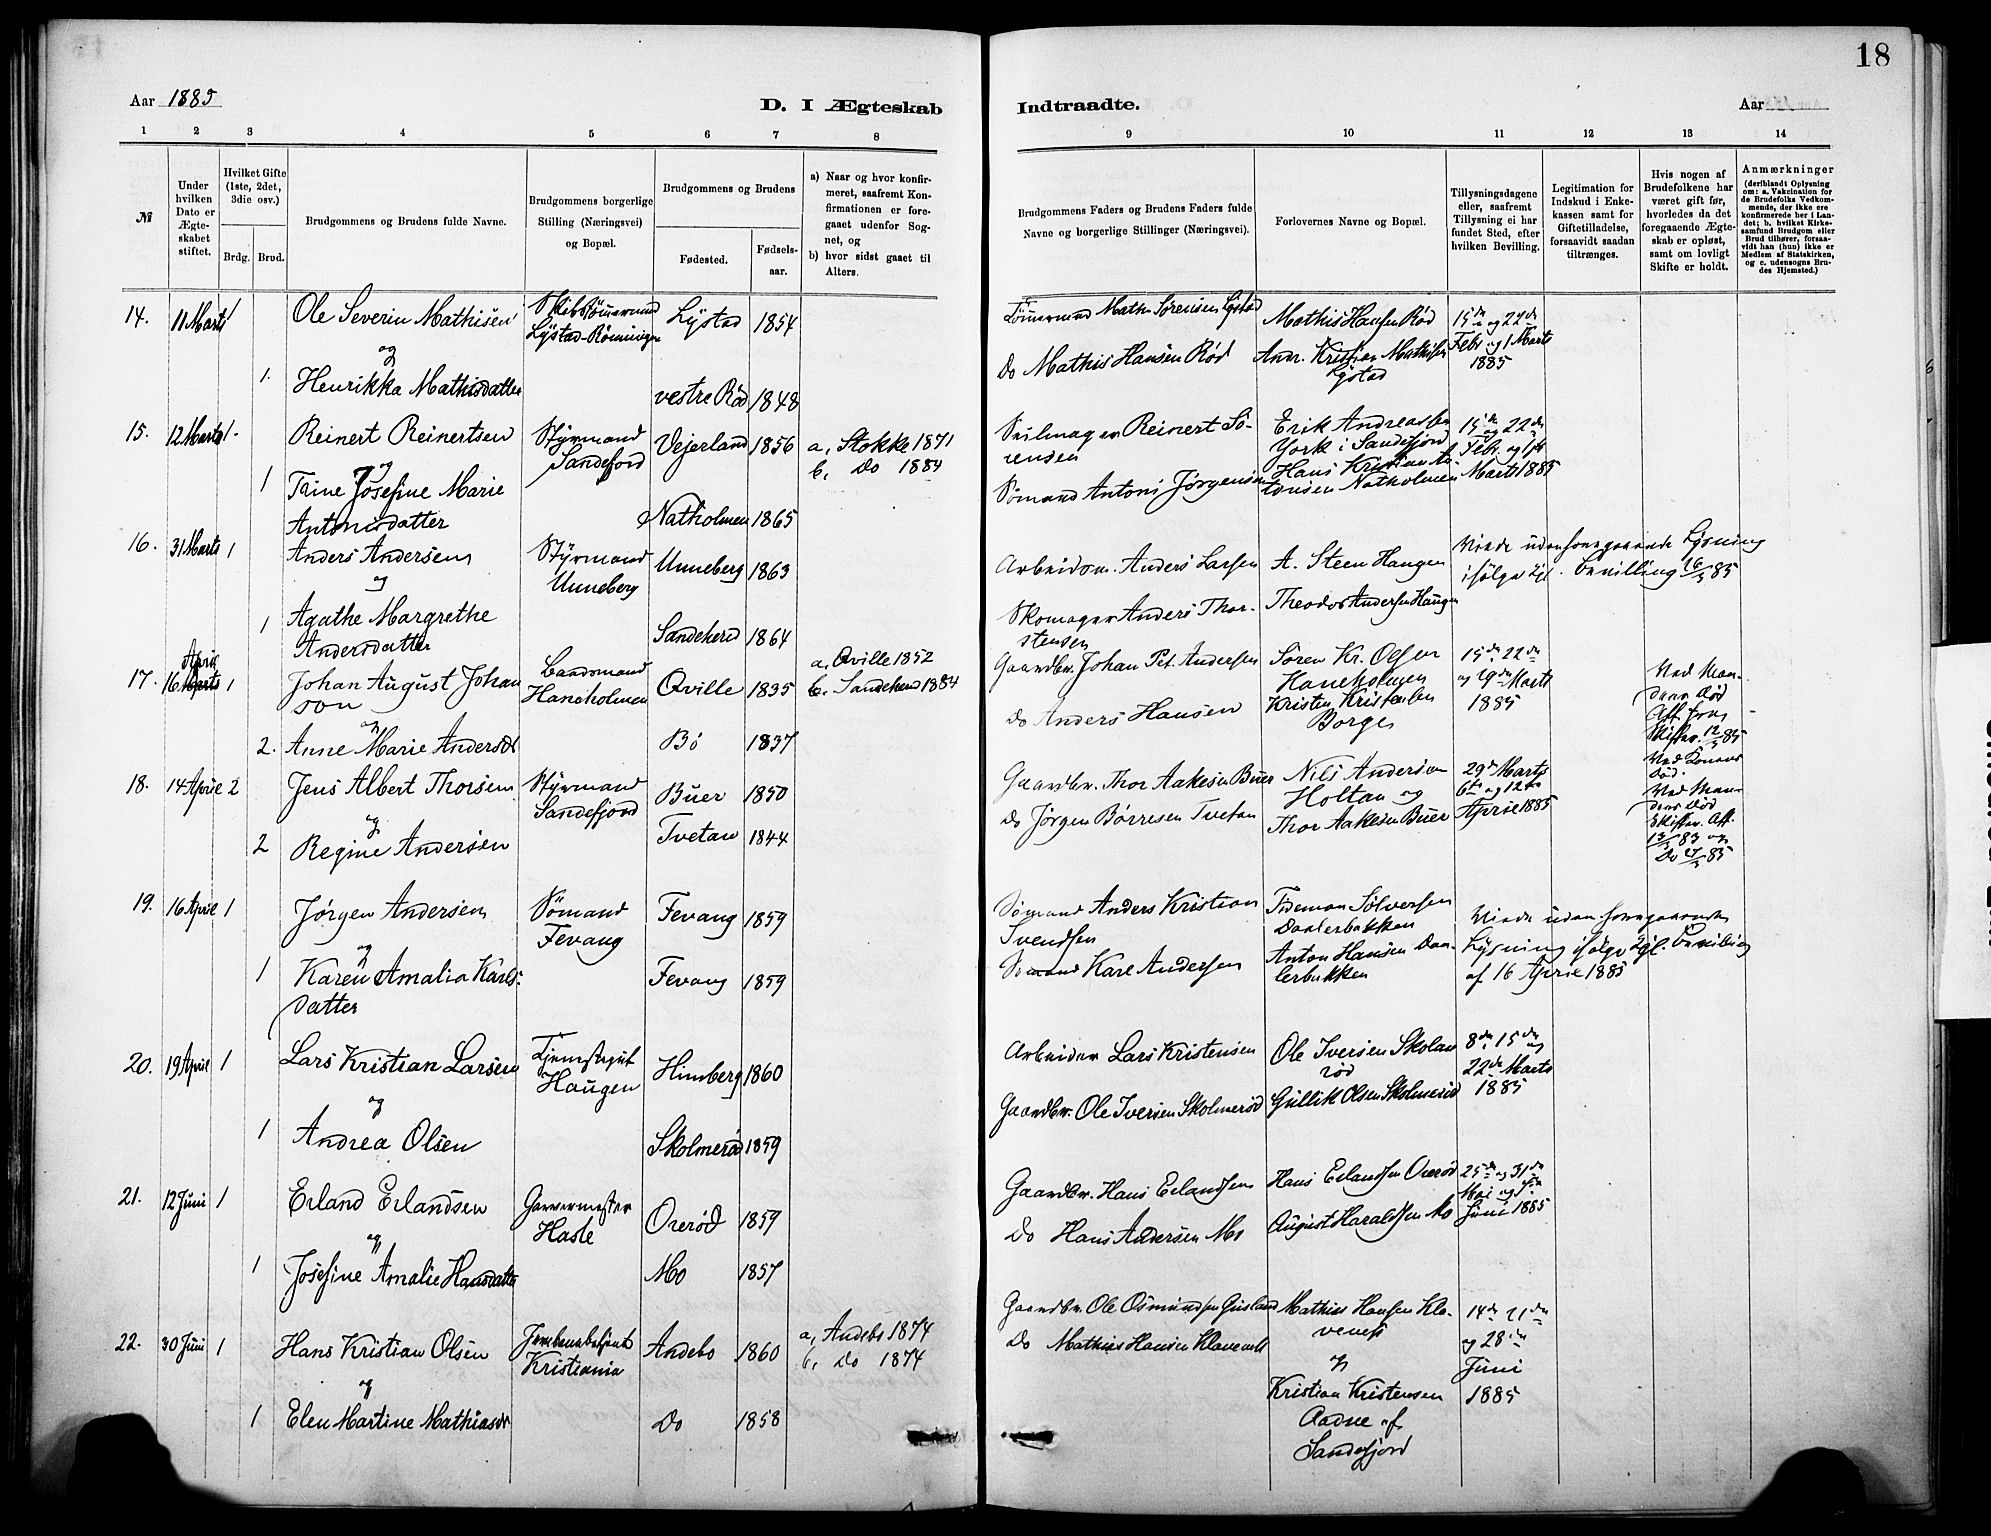 18
Aar 1885
D. I Ægteskab
Indtraadte.
Aar
1 2 3 4 5 6 7 8
9 10 11 12 13 14
№
Under hvilken Dato er Ægteskabet stiftet.
Hvilket Gifte (1ste, 2det, 3die osv.)
Brdg. Brud.
Brudgommens og Brudens fulde Navne.
Brudgommens borgerlige Stilling (Næringsvei) og Bopæl.
Brudgommens og Brudens
Fødested.
Fødselsaar.
a) Naar og hvor konfirmeret, saafremt Konfirmationen er foregaaet udenfor Sognet, og
b) hvor sidst gaaet til Alters.
Brudgommens Faders og Brudens Faders fulde Navne og borgerlige Stillinger (Næringsvei).
Forlovernes Navne og Bopæl.
Tillysningsdagene eller, saafremt Tillysning ei har fundet Sted, efter hvilken Bevilling.
Legitimation for Indskud i Enkekassen samt for Giftetilladelse, forsaavidt saadan tiltrænges.
Hvis nogen af Brudefolkene har været gift før, hvorledes da det foregaaende Ægteskab er opløst, samt om lovligt Skifte er holdt.
Anmærkninger (deriblandt Oplysning om: a. Vakcination for de Brudefolks Vedkommende, der ikke ere konfirmerede her i Landet; b. hvilket Kirkesamfund Brudgom eller Brud tilhører, forsaavidt han (hun) ikke er Medlem af Statskirken, og c. udensogns Brudes Hjemsted.)
14. 11 Marts 1 Ole Severin Mathisen Lystad-Rønningen Lystad 1854
og
1. Henrikka Mathisdatter vestre Rød 1848
Tømermand Math. Sørensen Lystad
Do Mathis Hansen Rød
Mathis Hansen Rød
Andr. Kristian Mathisen
Lystad
15de og 22de
Febr og 1 Marts
1885
15. 12 Marts 1. Reinert Reinertsen Styrmand Sandefjord Vejerland 1856 a, Stokke 1871
b, Do 1884
og
1 Trine Josefine Marie
Antonisdatter Natholmen 1865
Seilmager Reinert Sørensen
Sømand Antoni Jørgensen
Erik Andreassen
York i Sandefjord
Hans Kristian Antonsen Natholmen
15de og 22de
Febr. og 1ste
Marts 1885
16. 31 Marts 1 Anders Andersen Styrmand Unneberg Unneberg 1863
og
1 Agathe Margrethe
Andersdatter Sandeherd 1864
Arbeidsm. Anders Larsen
Skomager Anders Thorstensen
A. Steen Haugen
Theodor Andersen Haugen
Viede uden foregaaende Lysning
ifølge kgl. Bevilling 16/3 85
17. 16 April Marts 1 Johan August Johanson Haneholmen Qville 1835 a, Qville 1852
b. Sandeherd 1884
og
2. Anne Marie Andersdt Bø 1837
Gaardbr. Johan Pet. Andersen
Do Anders Hansen
Søren Kr. Olsen
Haneholmen
Kristen Kristensen
Borge
15de 22de
og 29de Marts
1885
Ved Mandens Død
Att. fra
Skifter. 12/3 85
18. 14 April 2 Jens Albert Thorsen Styrmand Sandefjord Buer 1850
og
2 Regine Andersen Tvetan 1844
Gaardbr. Thor Aakesen Buer
Do Jørgen Børresen Tvetan
Nils Andersen
Holtan og
Thor Aakesen Buer
29de Marts
6te og 12te
April 1885
Ved Konens
Død.
Ved Mandens Død
Skifter. Att.
83 og
Do 85
19. 16 April 1 Jørgen Andersen Sømand Fevang Fevang 1859
og
1 Karen Amalia Karlsdatter Fevang 1859
Sømand Anders Kristian
Svendsen
Sømand Karl Andersen
Tideman Sølversen
Daalerbakken
Anton Hansen Daalerbakken
Viede uden foregaaende
Lysning ifølge kgl. Bevilling
af 16 April 1885
20. 19 April 1 Lars Kristian Larsen Tjenstegut Haugen Himberg 1860
og
1 Andrea Olsen Skolmerød 1859
Arbeider Lars Kristensen
Gaardbr. Ole Iversen Skolmerød
Ole Iversen Skolmerød
Gullik Olsen Skolmerød
8de 15de og
22de Marts
1885
21. 12 Juni 1 Erland Erlandsen Garvermester Hasle Orerød 1859
og
1 Josefine Amalie Hansdatter Mo 1857
Gaardbr. Hans Erlandsen
Do Hans Andersen Mo
Hans Erlandsen Orerød
August Haraldsen Mo
25de og 31de
Mai og
Juni 1885
22. 30 Juni 1 Hans Kristian Olsen Jernbanebetjent Kristiania Andebo 1860 a, Andebo 1874
b, Do 1874
og
1 Elen Martine Mathiasdt Do 1858
Gaardbr. Ole Osmundsen Gusland
Do Mathias Hansen Klavenes
Mathias Hansen Klavenes
og
Kristian Kristensen
Aadne af
Sandefjord
14de 21de
og 28de
Juni
1885